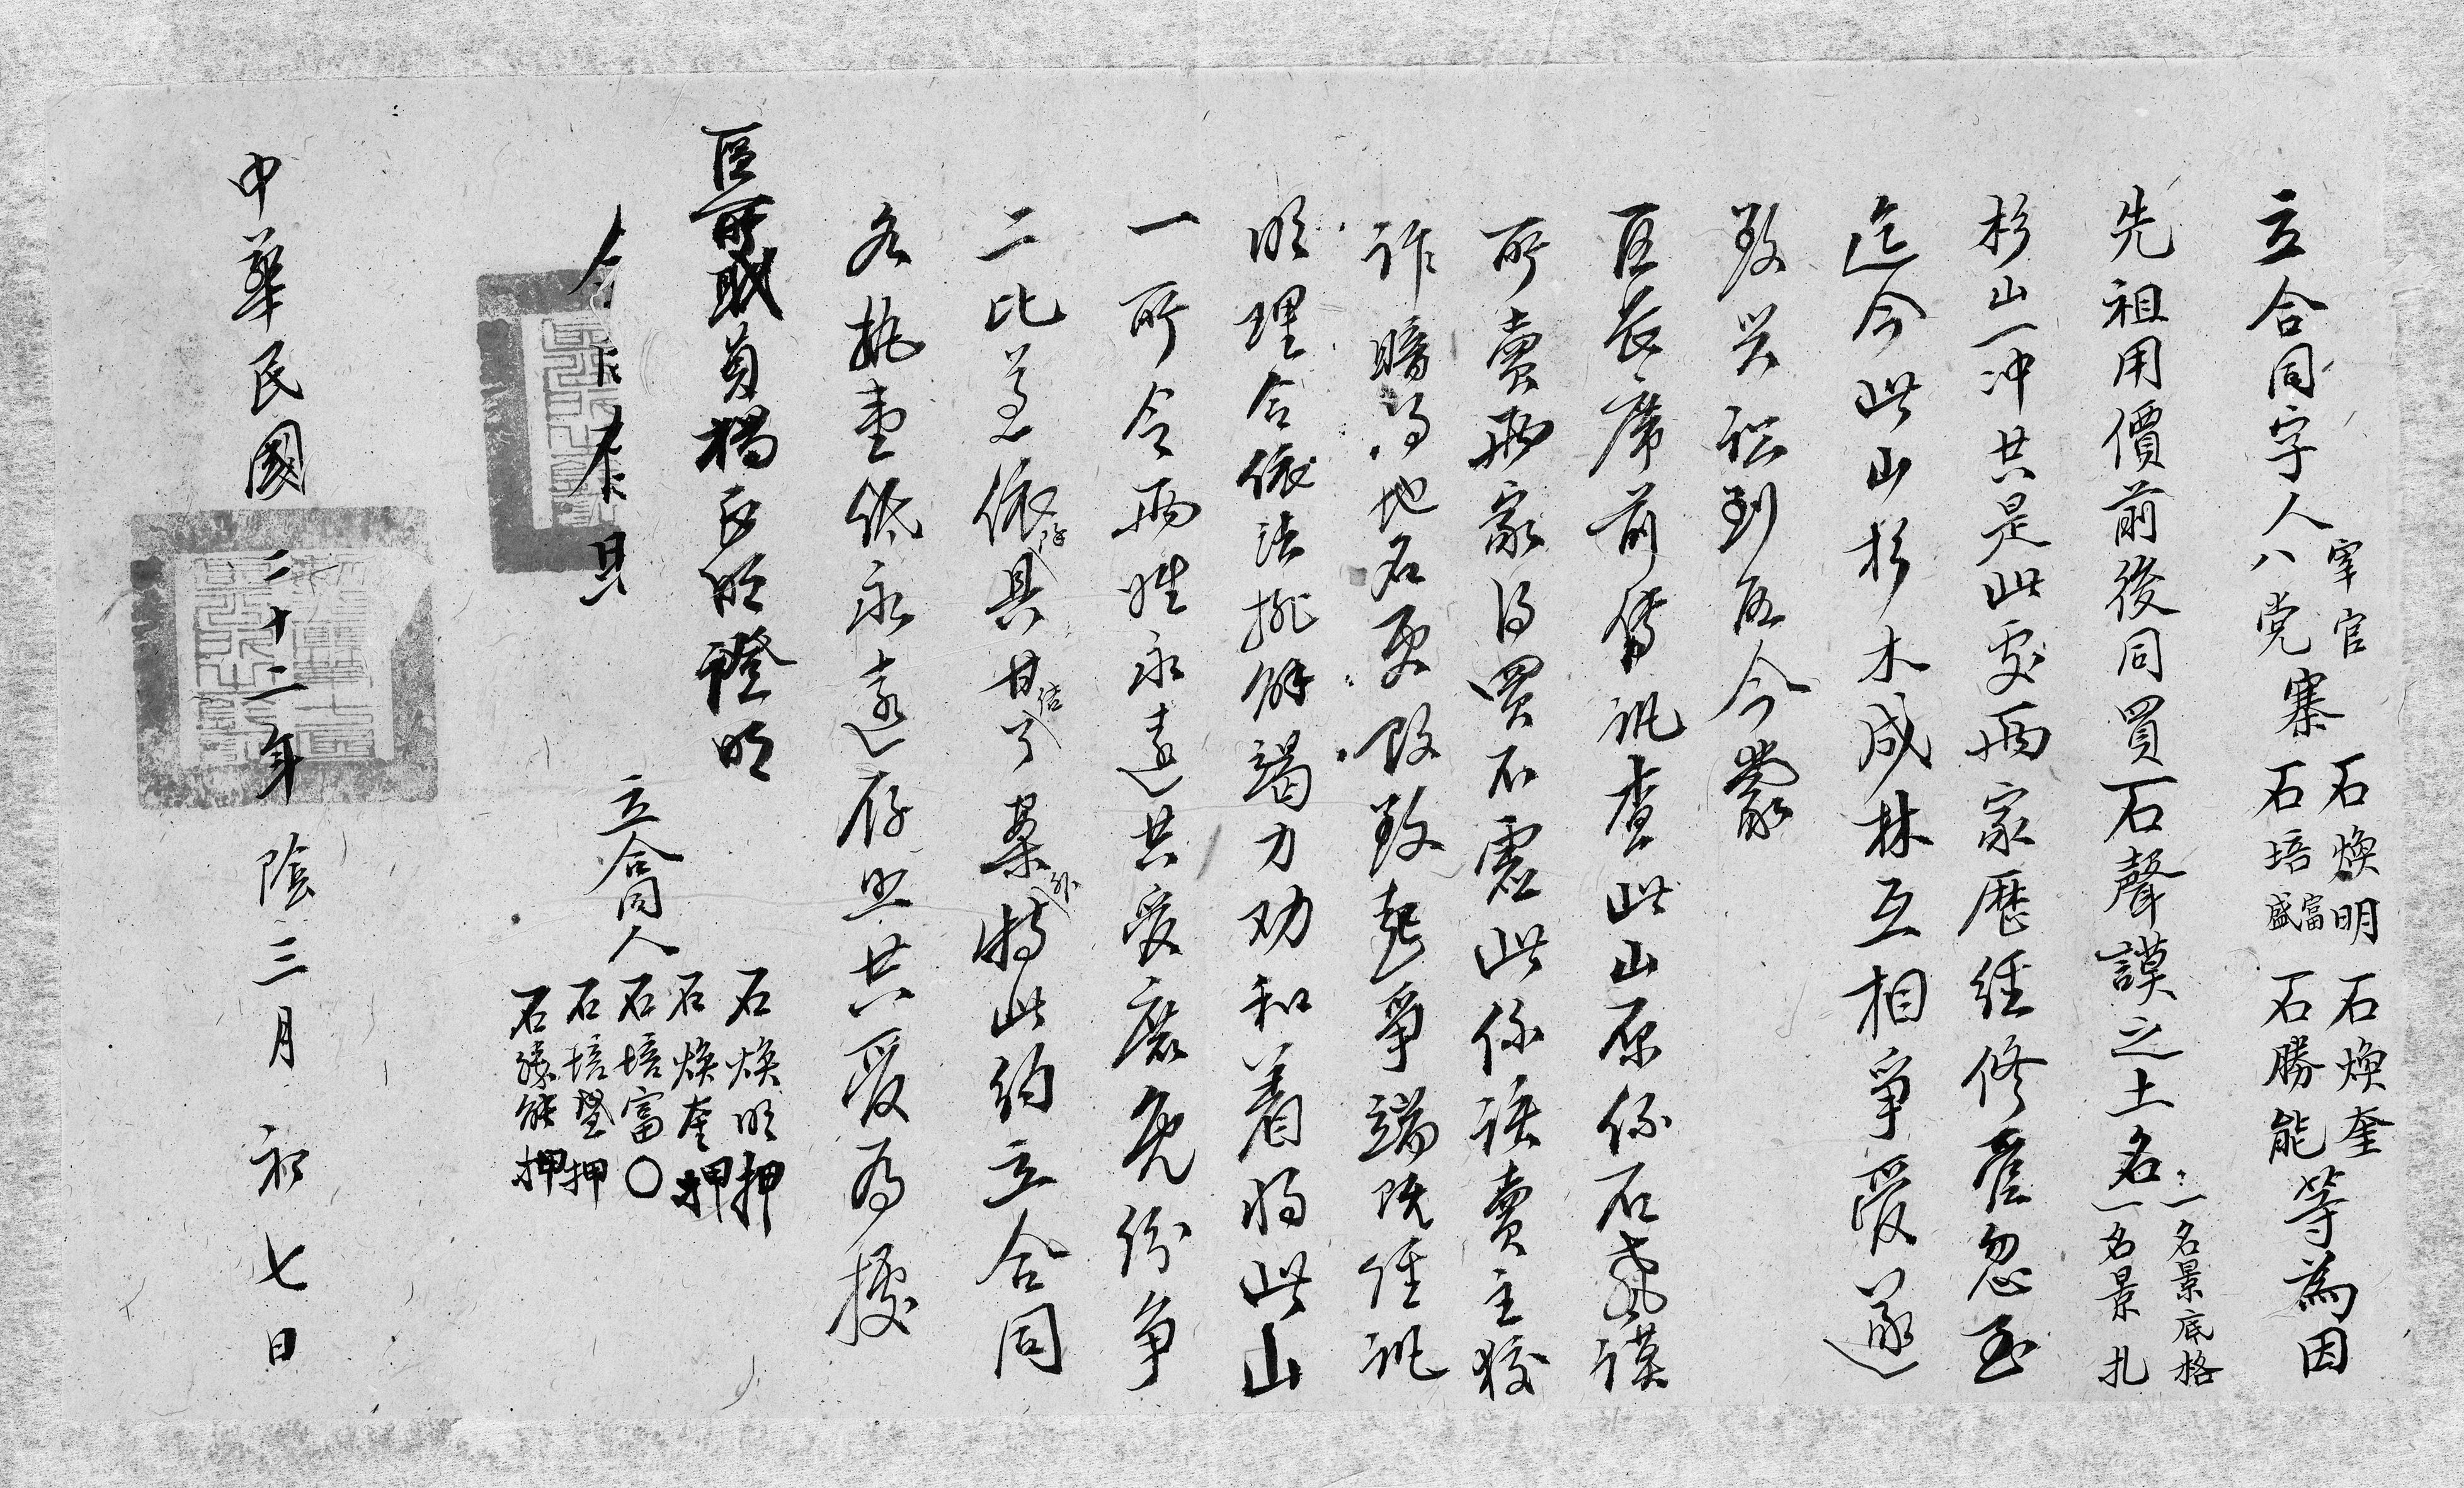 立合同字人宰官八党寨石煥明石培富盛石煥奎石勝能等為因
先祖用價前後同買石聲謨之土名一名景底格一名景扎
杉山一冲共是此處兩家歷經修舊忽至
迄今此山杉木成林互相爭爰遂
致興訟到區今蒙
區長席前傳訊查此山原係石聲謨
所賣兩家得買不虛此係該賣主狡
詐瞞得地名更改致起爭端既經訊
明理合依法排解竭力劝和着將此山
一所令兩姓永遠共爰庶免紛爭
二比善依存具甘結了案外特此約立合同
各执壹纸永遠存照共爰為據
區所職員楊臣明證明
立合同人
石煥明押
石煥奎押
石培富〇
石培聖押
石勝能押
中華民國二十二年陰三月初七日